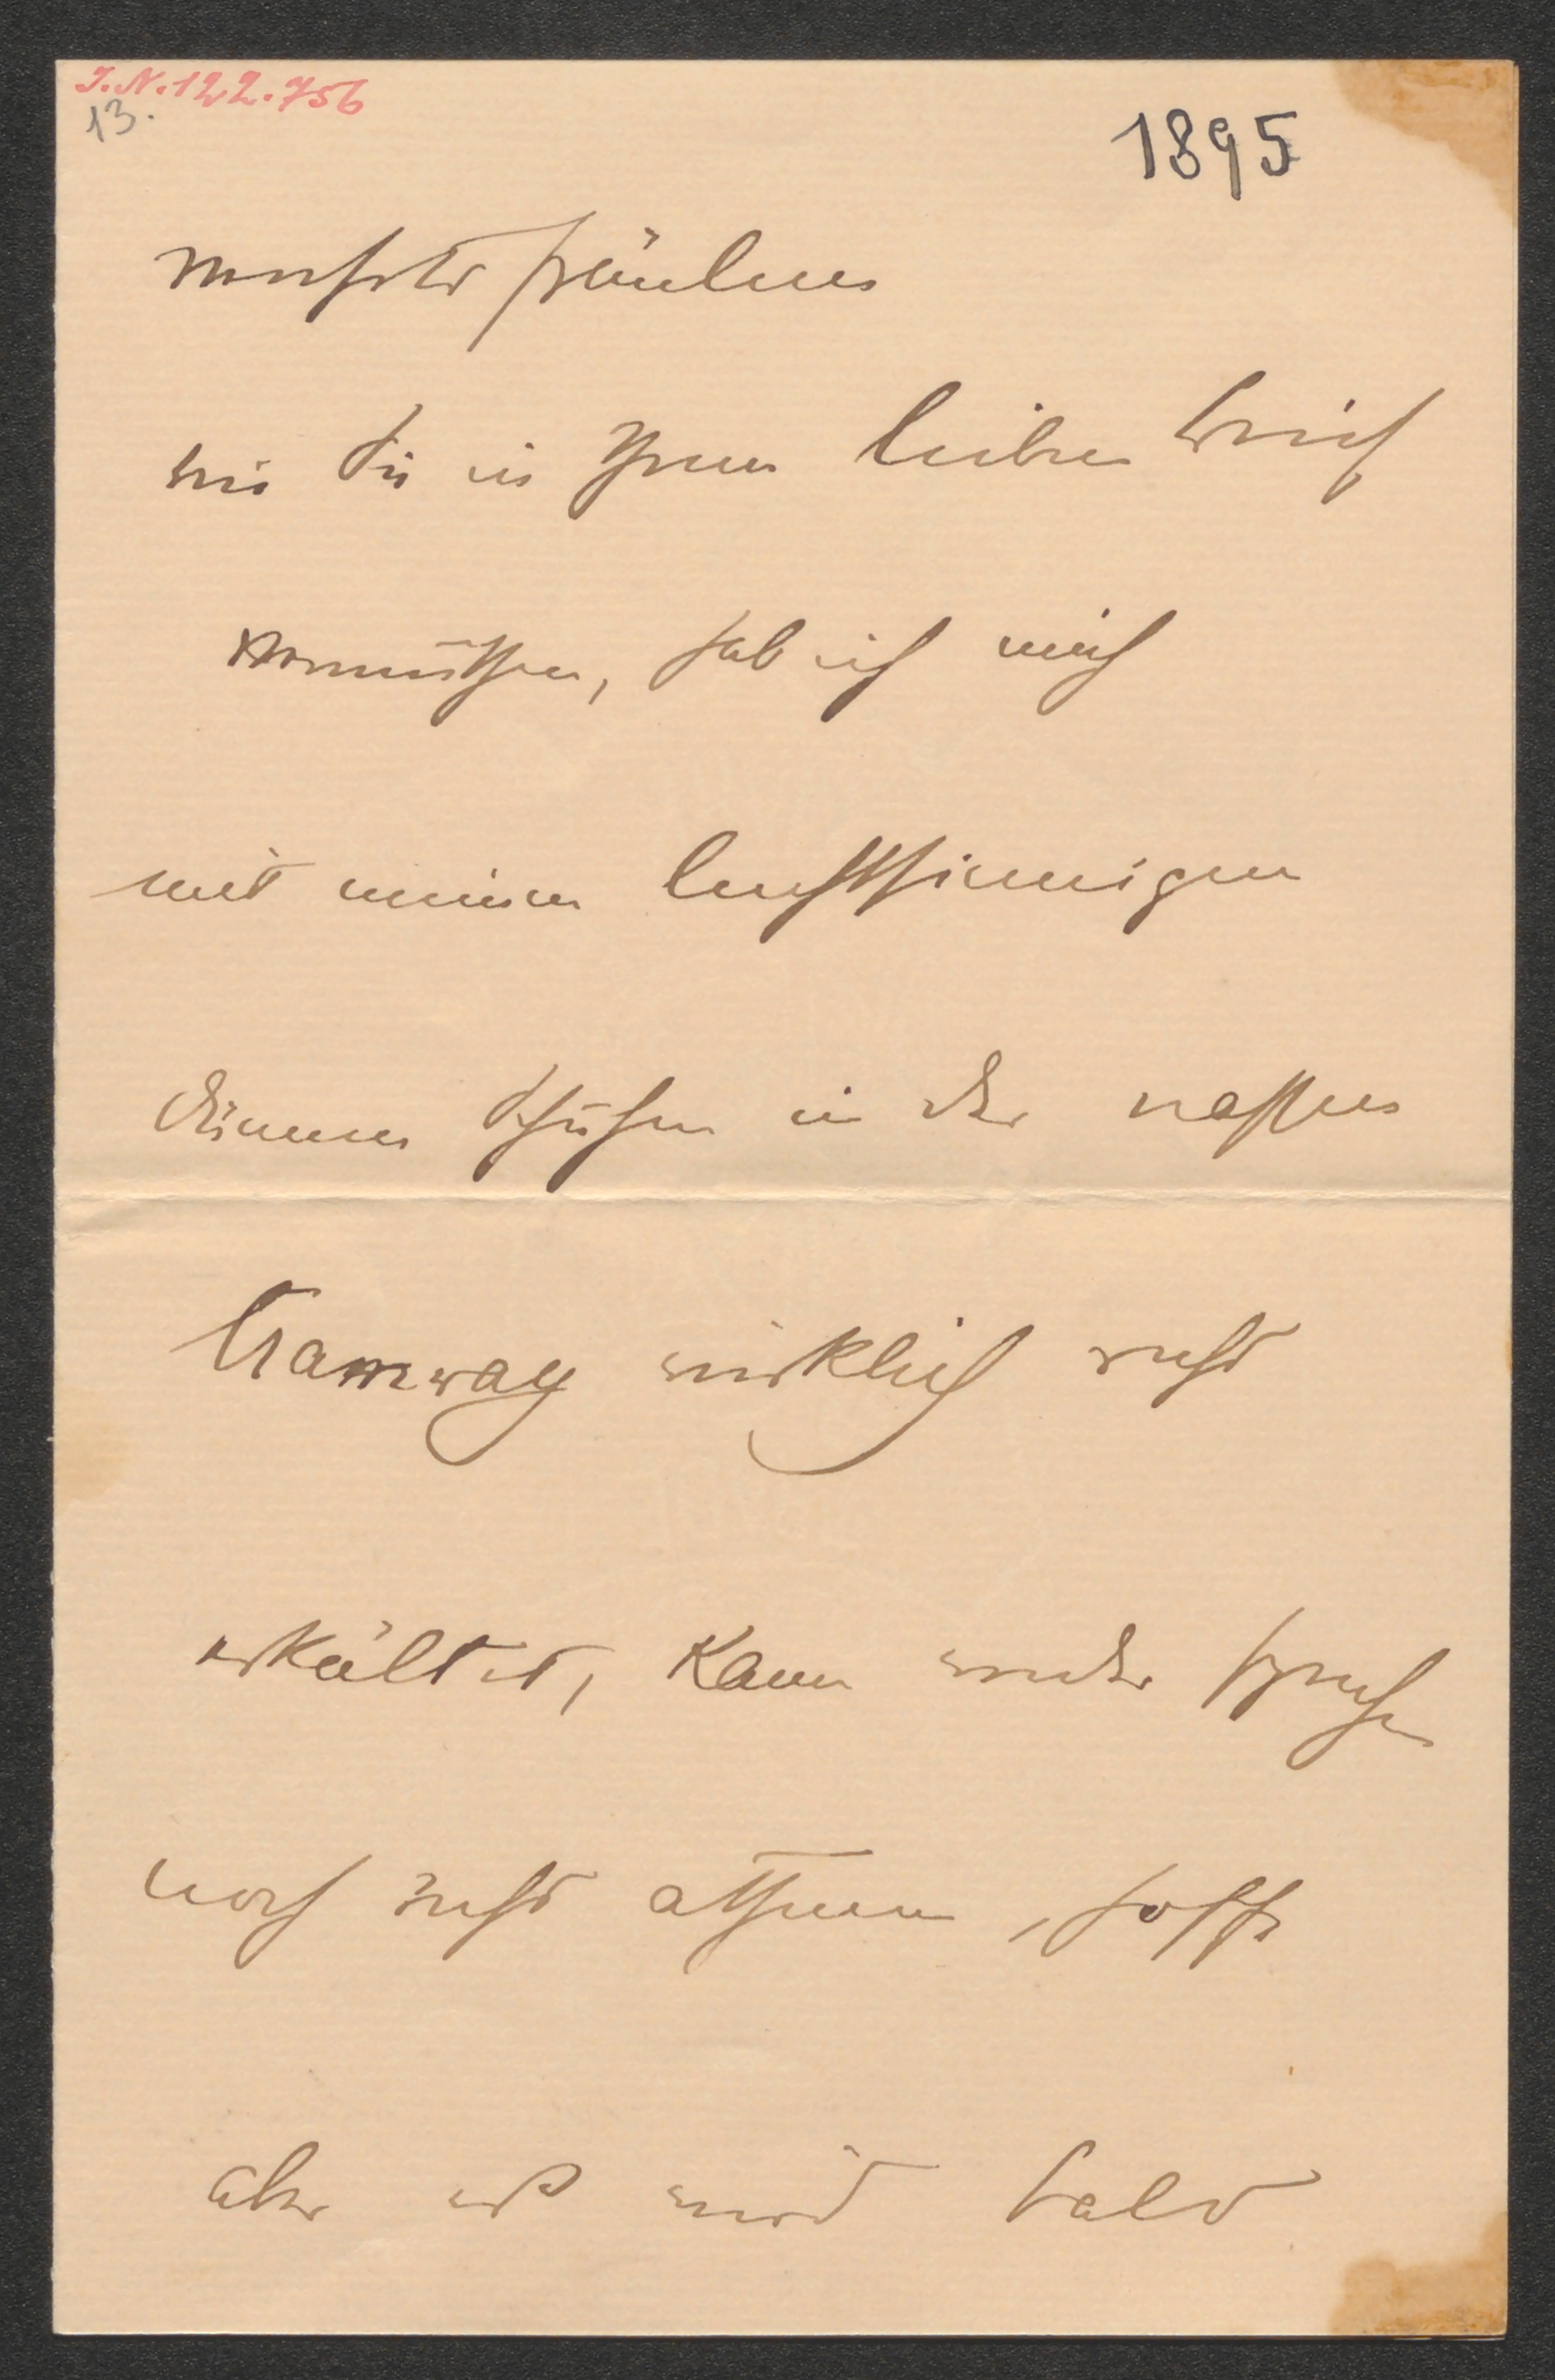 J.N.122.756
13.
1895
verehrtes Fräulein
wie Sie in Ihrem lieben Brief
vermuthen, hab ich mich
mit meinen leichtsinnigen
dünnen Schuhen in der nassen
Tramway wirklich recht
erkältet, kann weder sprechen
noch recht athmen, hoffe
aber es wird bald